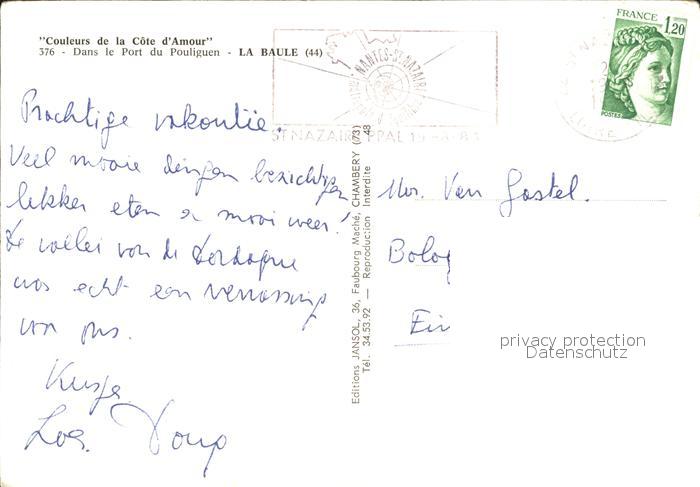 "Couleurs de la Côte d'Amour"
376 - Dans le Port du Pouliguen - LA BAULE (44)
Prachtige vakantie.
Veel mooie dingen bezichtigen
lekker eten en mooi weer!
De vallei van de Dordogne
was echt een verrassing
van ons.
Kusjes
Loes
FRANCE 1,20
POSTES
NANTES-ST-NAZAIRE
ST NAZAIRE PPAL
Editions JANSOL, 36, Faubourg Maché, CHAMBERY (73)
Tél. 34.53.92 — Reproduction Interdite 48
Mr. Van Gastel.
privacy protection
Datenschutz